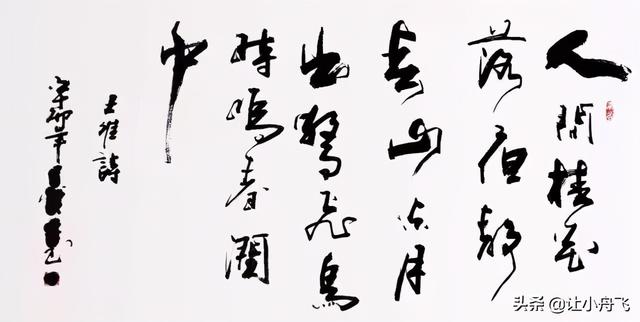 人閒桂花
落夜靜
春山空月
出驚飛鳥
時鳴春澗
中
王維詩
辛卯年
头条 @让小舟飞